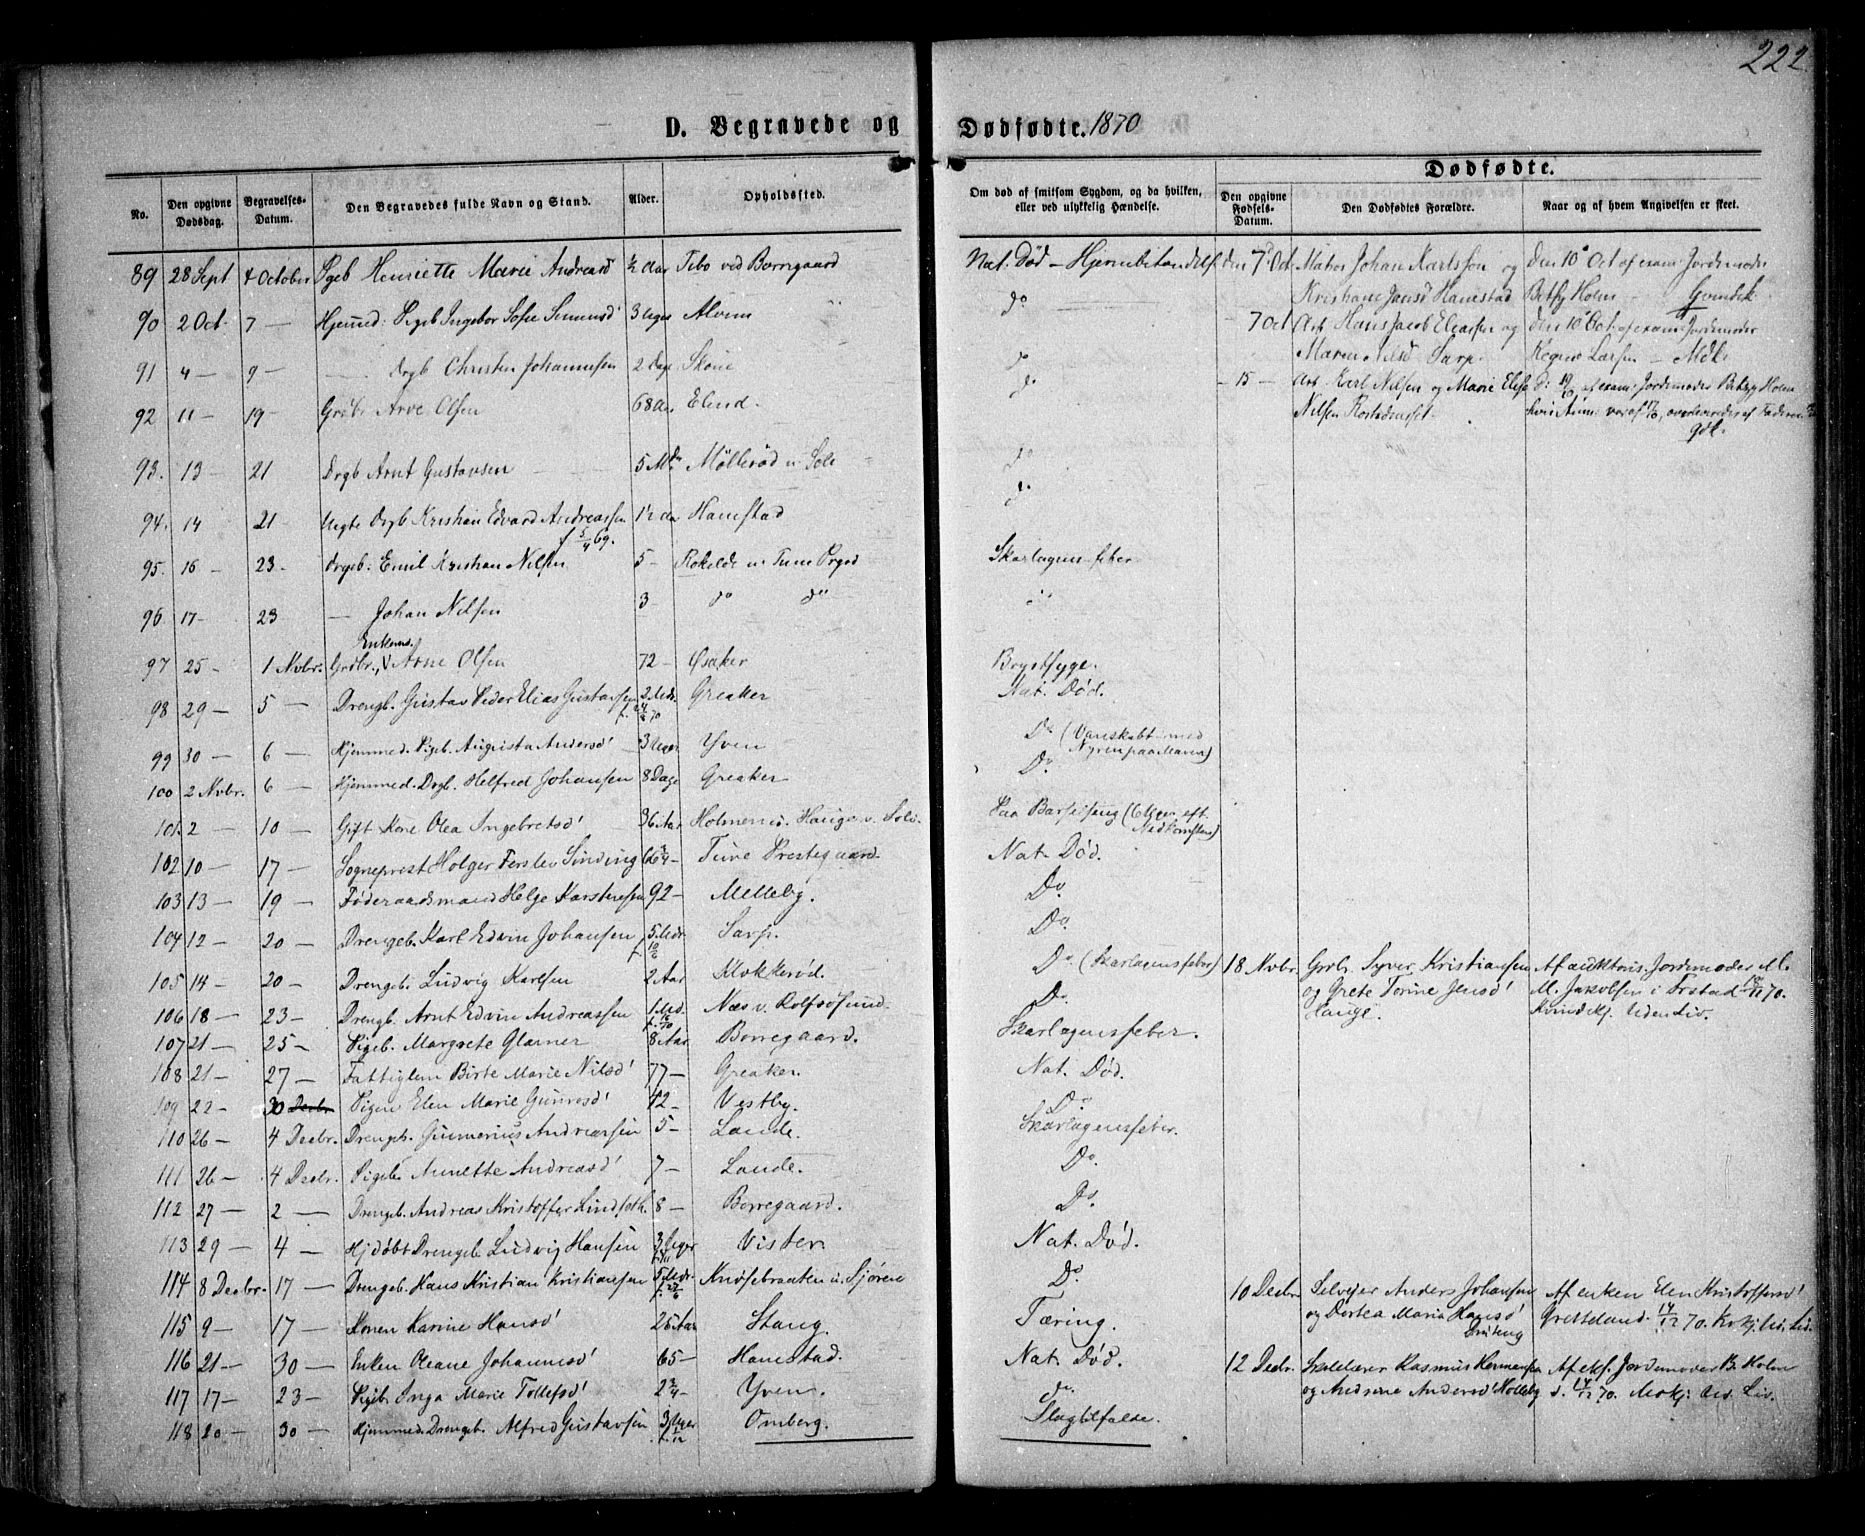 222.
D. Begravede og Dødfødte. 1870
Dødfødte.
No.
Den opgivne Dødsdag.
Begravelses-Datum.
Den Begravedes fulde Navn og Stand.
Alder.
Opholdssted.
Om død af smitsom Sygdom, og da hvilken, eller ved ulykkelig Hændelse.
Den opgivne Fødsels-Datum.
Den Dødfødtes Forældre.
Naar og af hvem Angivelsen er skeet.
89 28 Sept 4 October Pgeb Henriette Marie Andreasd ½ Aar Tibo ved Borregaard Nat. Død - Hjernebetændelse den 7 Oct Johan Karlssen og den 10 Oct af exam: Jordemoder
Kristiane Jensd Hanestad Betsy Holm -
90 2 Oct. 7 — Hjemmed: Pigeb Ingebor Sofie Simensd 3 Uger Alvim do - 7 Oct Arb. Hans Jacob Eliassen og den 10 Oct. af exam: Jordemoder
Maren Nilsd Sarp. Larsen - Mdk.
91 4 — 9 — Drgb Christen Johannesen 2 Dage Skone do - 15 - Arb. Karl Nilsen og Marie af exam: Jordemoder Betzy Holm
92 11 — 19 — Grdbr Arve Olsen 68 Aar Elend. do Nilsen
93. 13 — 21 Drgb Arnt Gustavsen 5 Md Møllerød u. Sole do
94. 14 21 — Uegte Drgb Kristian Edvard Andreassen 1½ Aar Hanestad do
f 5/4 69.
95. 16 — 23 — Drgeb: Emil Kristian Nilsen 5 — Rokilde u. Tune Prgd Skarlagensfeber
96 17 — 23 — Johan Nilsen 3 do do "
Enkem.
97 25 — 1 Nvbr. Grdbr., Arne Olsen 72 — Øsaker Brystsyge.
98 29 — 5 — Drengb. Gustav Peder Elias Gustavsen 2 Mdr. Greaker Nat. Død.
99 30 — 6 — Hjemmed. Pigeb. Augusta Andersd 3 Uger Yven Do (Vanskabt med Nyren paa Maven)
100 2 Nvbr. 6 — Hjemmed. Drgb. Helfred Johansen 8 Dage Greaker Do.
101. 2 — 10 — Gift Kone Olea Ingebretsd' 36 Aar Holmen u. Hauge v. Sole. Paa Barselseng (6 Uger eft. Nedkomsten)
102 10 — 17 — Sogneprest Holger Fersler Sinding 66¾ — Tune Prestegaard Nat. Død.
103 13 — 19 — Føderaadsmand Helge Karstensen 92 — Melleby. Do.
104 12 — 20 — Drengeb. Karl Edvin Johansen 5 Mdr. Sarp. Do.
105 14 — 20 — Drengeb. Ludvig Karlsen 2 Aar Klokkerød. Do (Skarlagensfeber) 18 Nvbr. Grdbr. Syver Kristiansen Af auktoris. Jordemoder M.
og Grete Torine Jensd' M. Jakobsen i Irstad 70.
106 18 — 23 — Drengb. Arnt Edvin Andreassen 1 Md. Næs v. Rolfsøsund Do. Hauge. Kvindekj. Uden Liv.
107 21 — 25 — Pigeb. Margrete Glarner 8 Aar Borregaard. Skarlagensfeber.
108 21 — 27 — Fattiglem Birte Marie Nilsd' 77 — Greaker Nat. Død.
109 22 — 30 Decbr. Pigen Elen Marie Gunnesd' 42 — Vestby. Do
110 26 — 4 Decbr. Drengeb. Gunnerius Andreassen 5 — Lande. Skarlagensfeber.
111 26 — 4 Decbr. Pigeb. Annette Andreasd' 7 — Lande. Do.
112 27 — 2 — Drengeb. Andreas Kristoffer Lindfoth. 8 — Borregaard. Do
113 29 — 4 — Hj.døbt Drengeb. Ludvig Hansen 3 Uger Vister. Nat. Død.
114 8 Decbr. 17 — Drengeb. Hans Kristian Kristiansen 5 Mdr. Knosebraaten u. Sjøren Do. 10 Decbr Selveier Anders Johansen Af enken Elen Kristoffersd'
115 9 — 17 — Konen Karine Hansd' 25 Aar Stang. Tæring. og Dortea Maria Hansd' Gretteland. 14/12 70. Kvkj. Ud. Liv.
116 21 — 30 — Enken Oleane Johannesd' 65 — Hanestad. Nat. Død. 12 Decbr. Rasmus Hermansen Af eks. Jordemoder B. Holm
117 17 — 23 — Pigeb. Inga Marie Tollefsd' 2¾ — Yven. do. og Andrine Andersd' Nolleby d. 14/12 70. Mskj. Ud. Liv.
118 20 — 30 — Hjemmed. Drengeb. Alfred Gustavsen 3 Uger Omberg. Slagtilfælde.